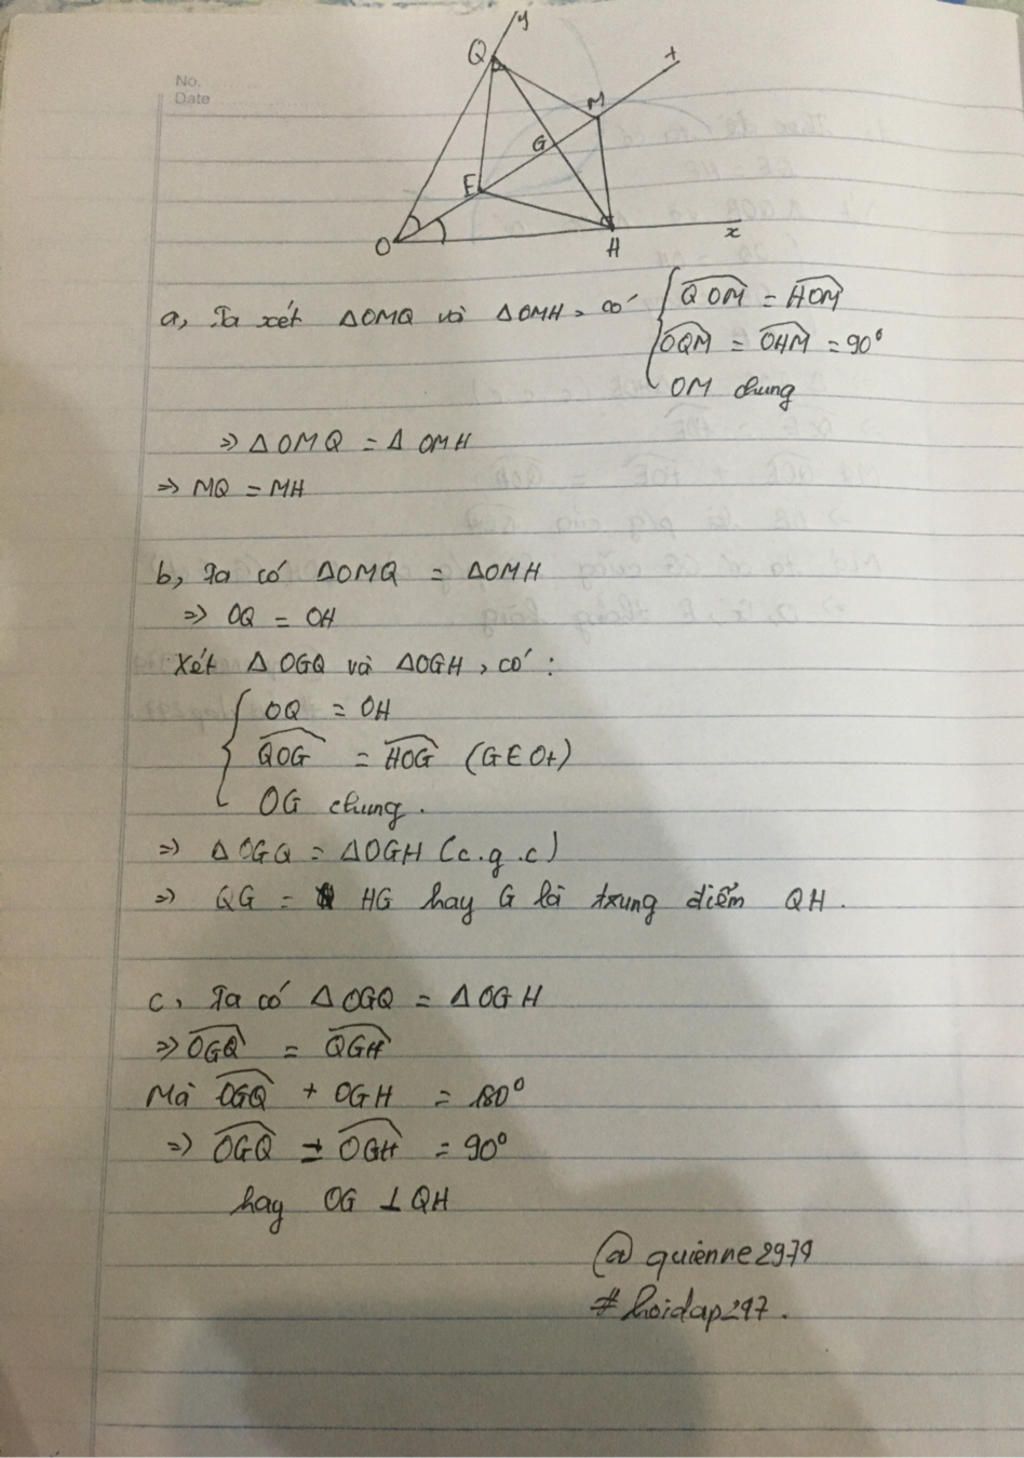 No.
Date
y
Q
t
M
G
E
O
H
x
a, Ta xét ΔOMQ và ΔOMH, có { QOM = HOM
OQM = OHM = 90°
OM chung
=> ΔOMQ = ΔOMH
=> MQ = MH
b, Ta có ΔOMQ = ΔOMH
=> OQ = OH
Xét ΔOGQ và ΔOGH, có:
{ OQ = OH
QOG = HOG (G∈Ot)
OG chung.
=> ΔOGQ = ΔOGH (c.g.c)
=> QG = HG hay G là trung điểm QH.
c, Ta có ΔOGQ = ΔOGH
=> OGQ = QGH
Mà OGQ + OGH = 180°
=> OGQ = OGH = 90°
hay OG ⊥ QH
@quienne2979
#hoidap247.